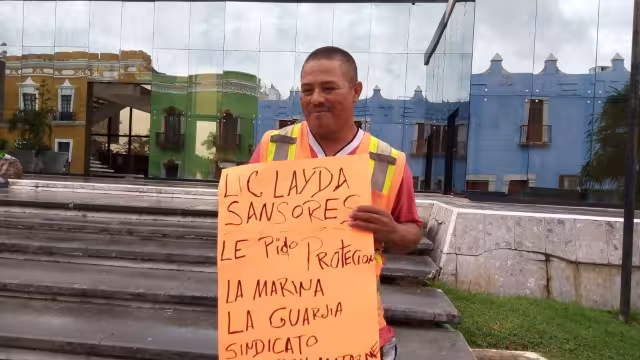 LIC LAYDA
SANSORES
LE PiDO PROTECION
LA MARINA
LA GUARJIA
SINDICATO